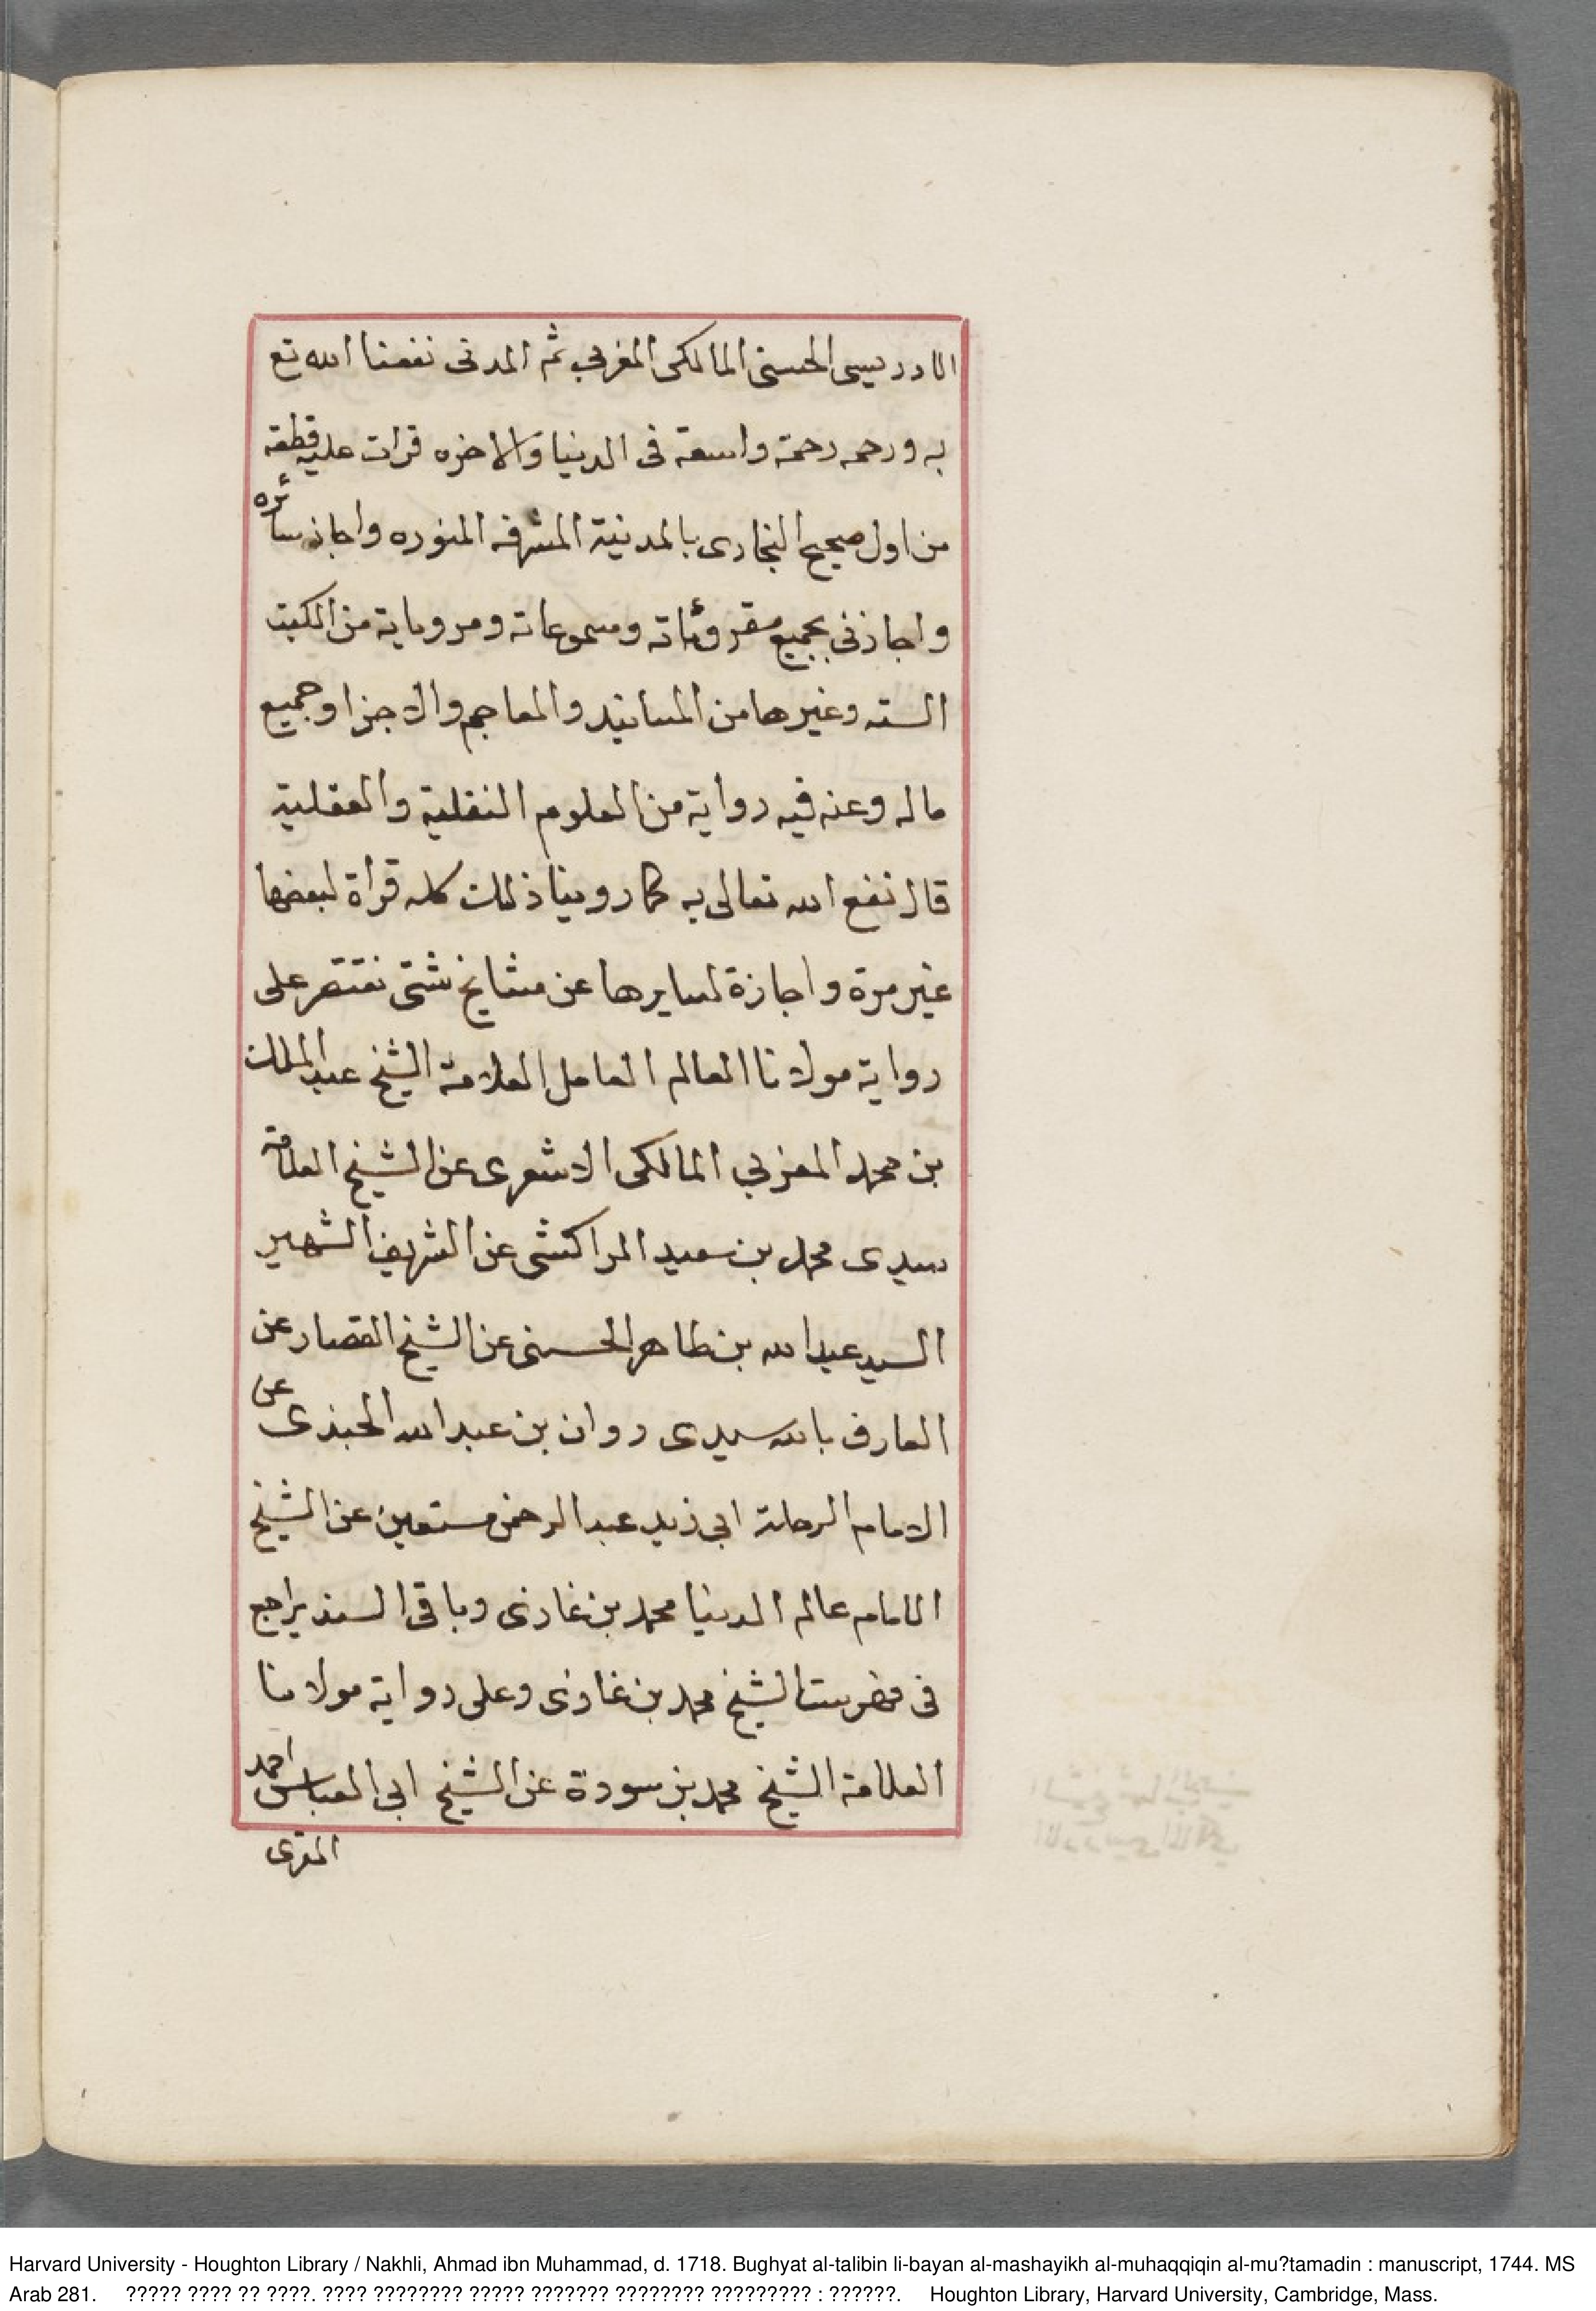 الادريسى الحسنى المالكى المغربي ثم المدنى نفعنا الله تع
به ورحمه رحمة واسعة فى الدنيا والاخره قرات عليه قطعة
من اول صحيح البخارى بالمدينة المشرفه المنوره واجاز سائره
واجازنى بجميع مقروئاته ومسموعاته ومروياته من الكتب
السته وغيرها من المسانيد والمعاجم والاجزا وجميع
ماله وعنه فيه رواية من العلوم النقلية والعقلية
قال نفع الله تعالى به كما روينا ذلك كله قراة لبعضها
غير مرة واجازة لسايرها عن مشايخ شتى نقتصر على
رواية مولانا العالم العامل العلامة الشيخ عبد الملك
بن محمد المغربي المالكى الاشعرى عن الشيخ العلامة
سيدى محمد بن سعيد المراكشى عن الشريف الشهير
السيد عبد الله بن طاهر الحسنى عن الشيخ القصار عن
العارف بالله سيدى روان بن عبد الله الجنزى عن
الامام الرحلة ابي زيد عبد الرحمن مستعين عن الشيخ
الامام عالم الدنيا محمد بن غازى وباقى السند يراجع
فى فهرست الشيخ محمد بن غازى وعلى رواية مولانا
العلامة الشيخ محمد بن سودة عن الشيخ ابي العباس احمد
المقرى
Harvard University - Houghton Library / Nakhli, Ahmad ibn Muhammad, d. 1718. Bughyat al-talibin li-bayan al-mashayikh al-muhaqqiqin al-mu?tamadin : manuscript, 1744. MS
Arab 281. ????? ???? ?? ????. ???? ???????? ????? ??????? ???????? ????????? : ??????. Houghton Library, Harvard University, Cambridge, Mass.